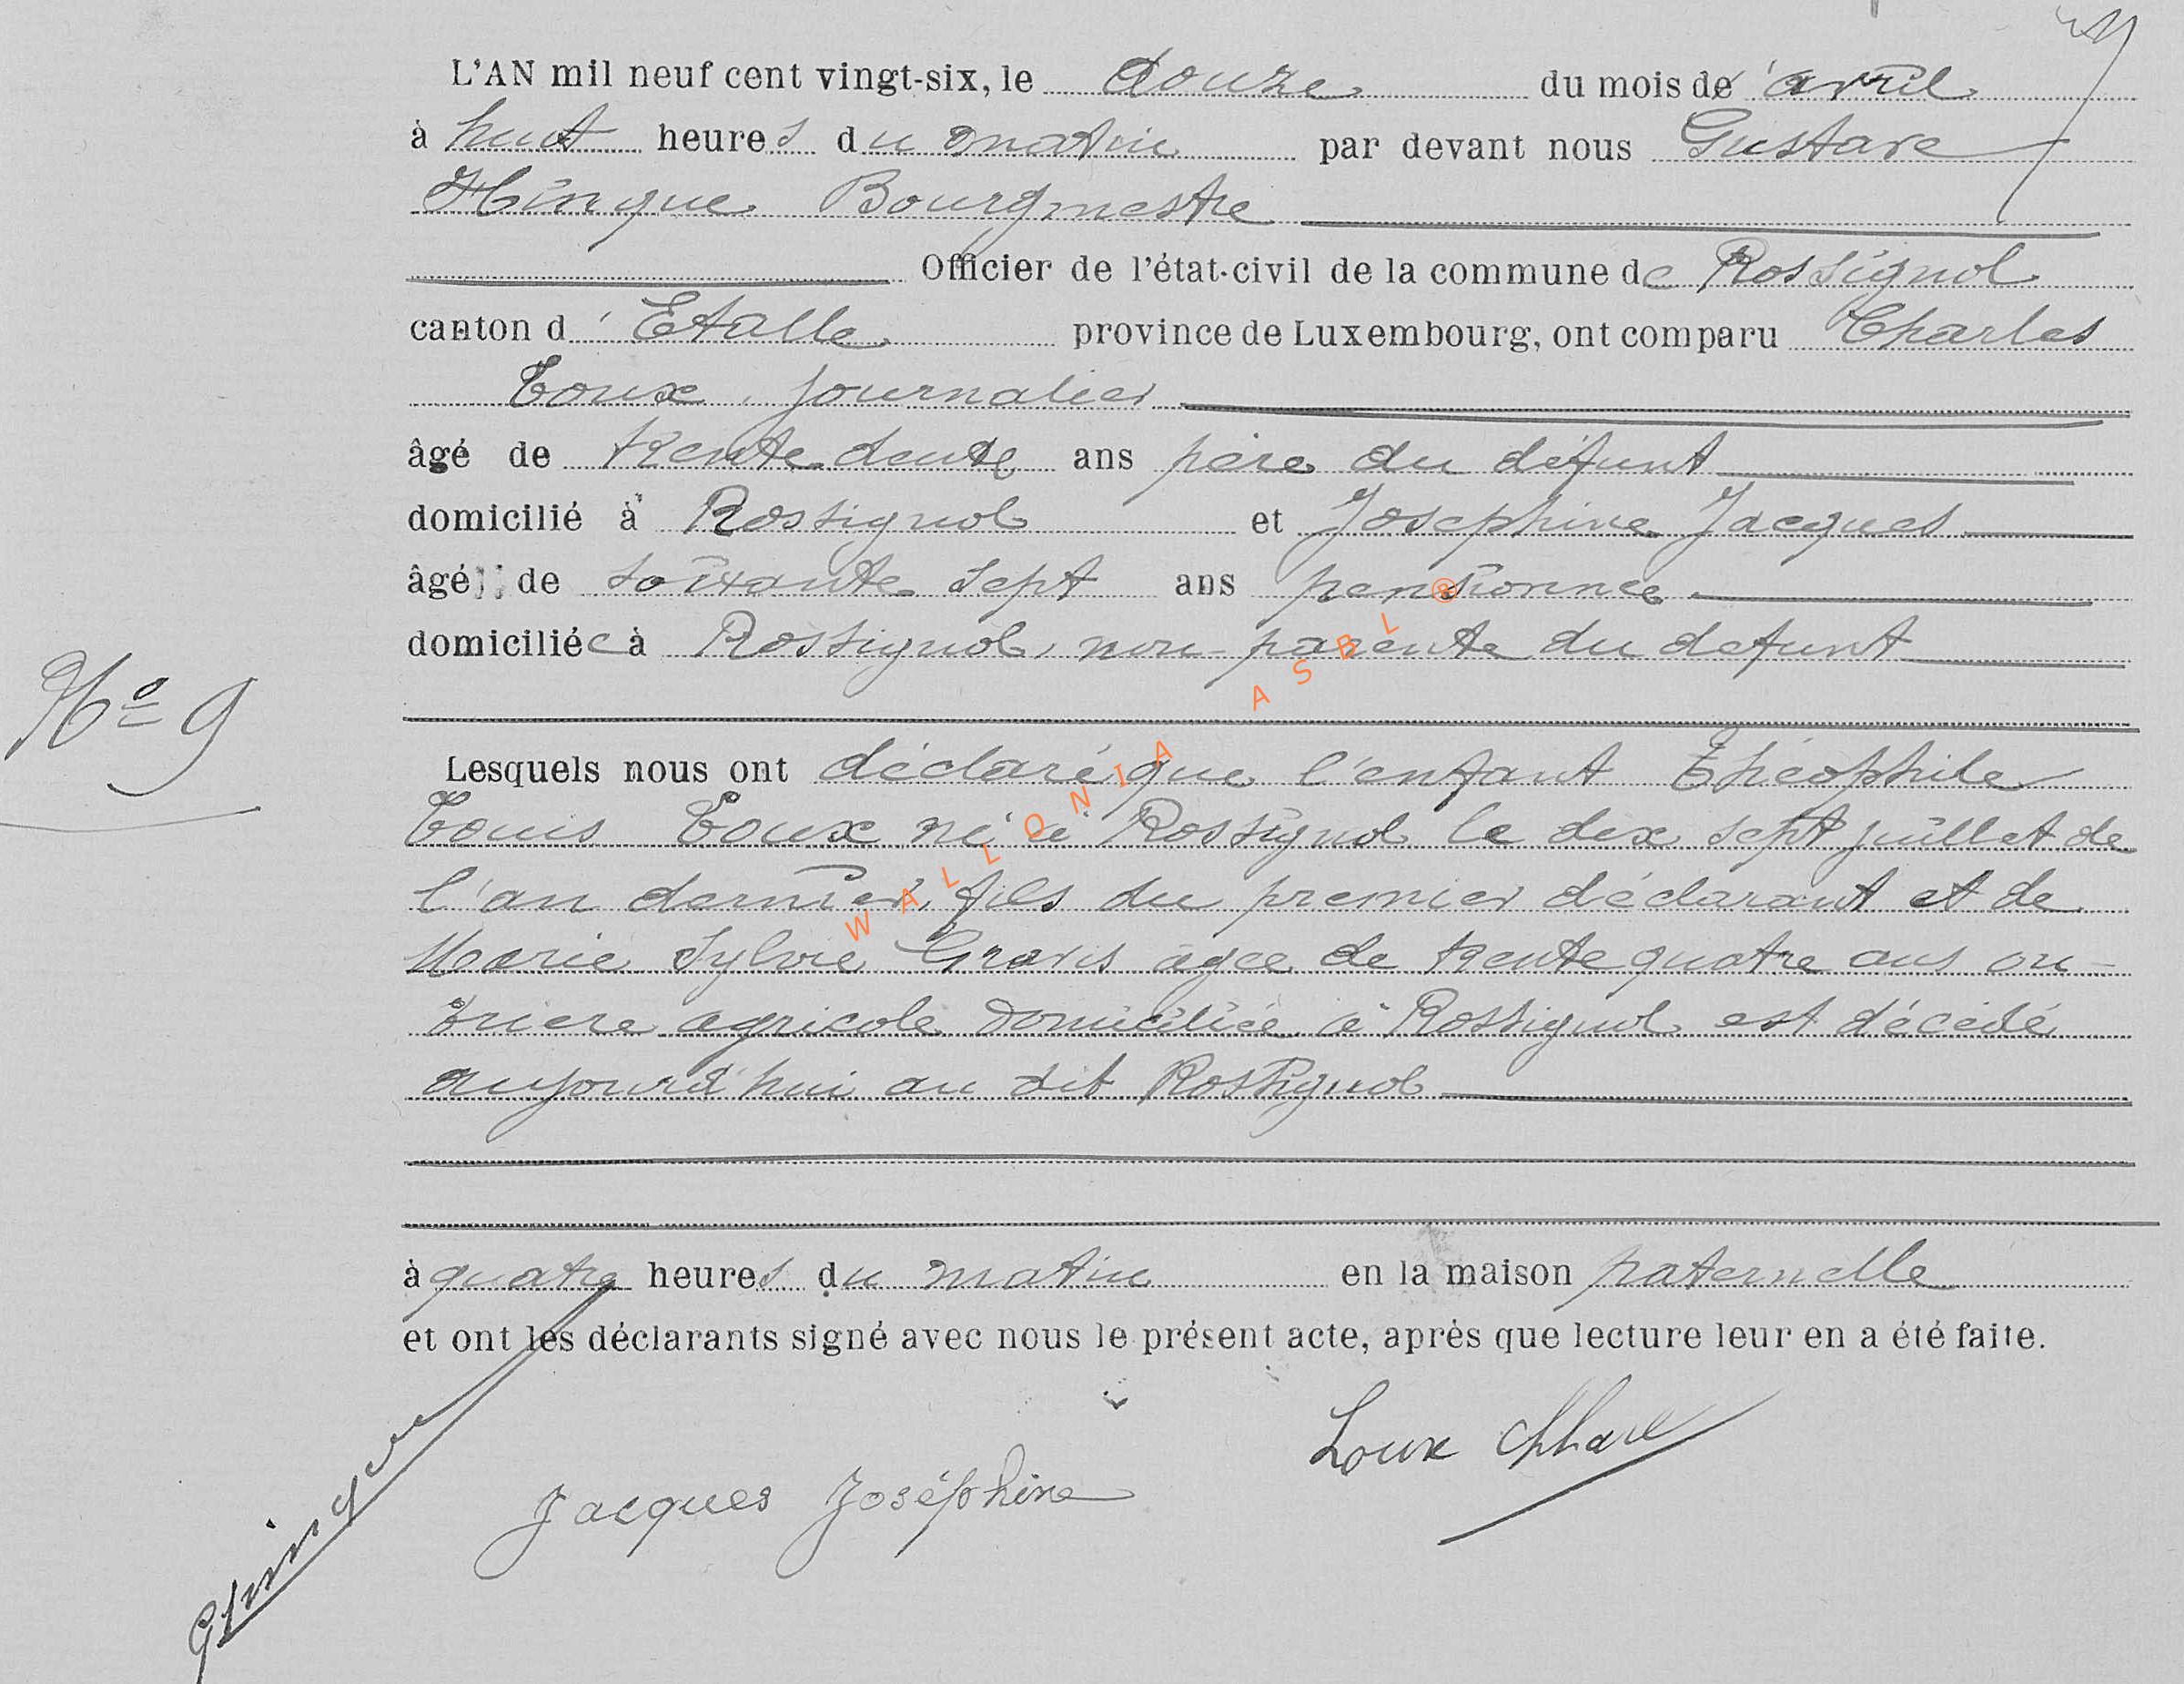 L'AN mil neuf cent vingt-six, le douze du mois d'avril
à huit heures du matin par devant nous Gustave
Hinque Bourgmestre
Officier de l'état-civil de la commune de Rossignol
canton d'Etalle province de Luxembourg, ont comparu Charles
Loux, journalier
âgé de trente-deux ans père du défunt
domicilié à Rossignol et Josephine Jacques
âgé de soixante sept ans pensionnée
domiciliée à Rossignol, non-parente du defunt
No 9
Lesquels nous ont déclaré que l'enfant Théophile
Louis Loux né à Rossignol le dix sept juillet de
l'an dernier, fils du premier déclarant et de
Marie Sylvie Gravis agée de trente quatre ans ou-
vriere agricole domiciliée à Rossignol est décédé
aujourd'hui au dit Rossignol
à quatre heures du matin en la maison paternelle
et ont les déclarants signé avec nous le présent acte, après que lecture leur en a été faite.
Loux
Jacques Joséphine
GHinque
WALLONIA ASBL ®